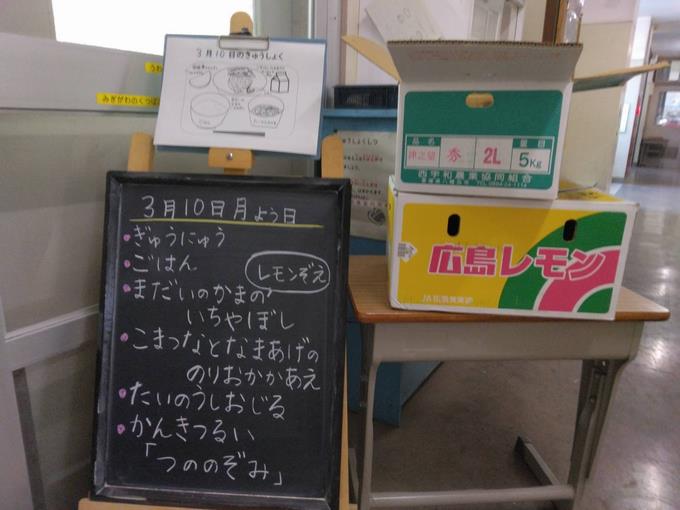 3月10日のきゅうしょく
みぎがわのくつば
3月10日月よう日
ぎゅうにゅう
ごはん
レモンぞえ
まだいのかまの
いちやぼし
こまつなとなまあげの
のりおかかあえ
たいのうしおじる
かんきつるい
「つののぞみ」
品名
量目
津之望
秀
2L
5Kg
西宇和農業協同組合
広島レモン